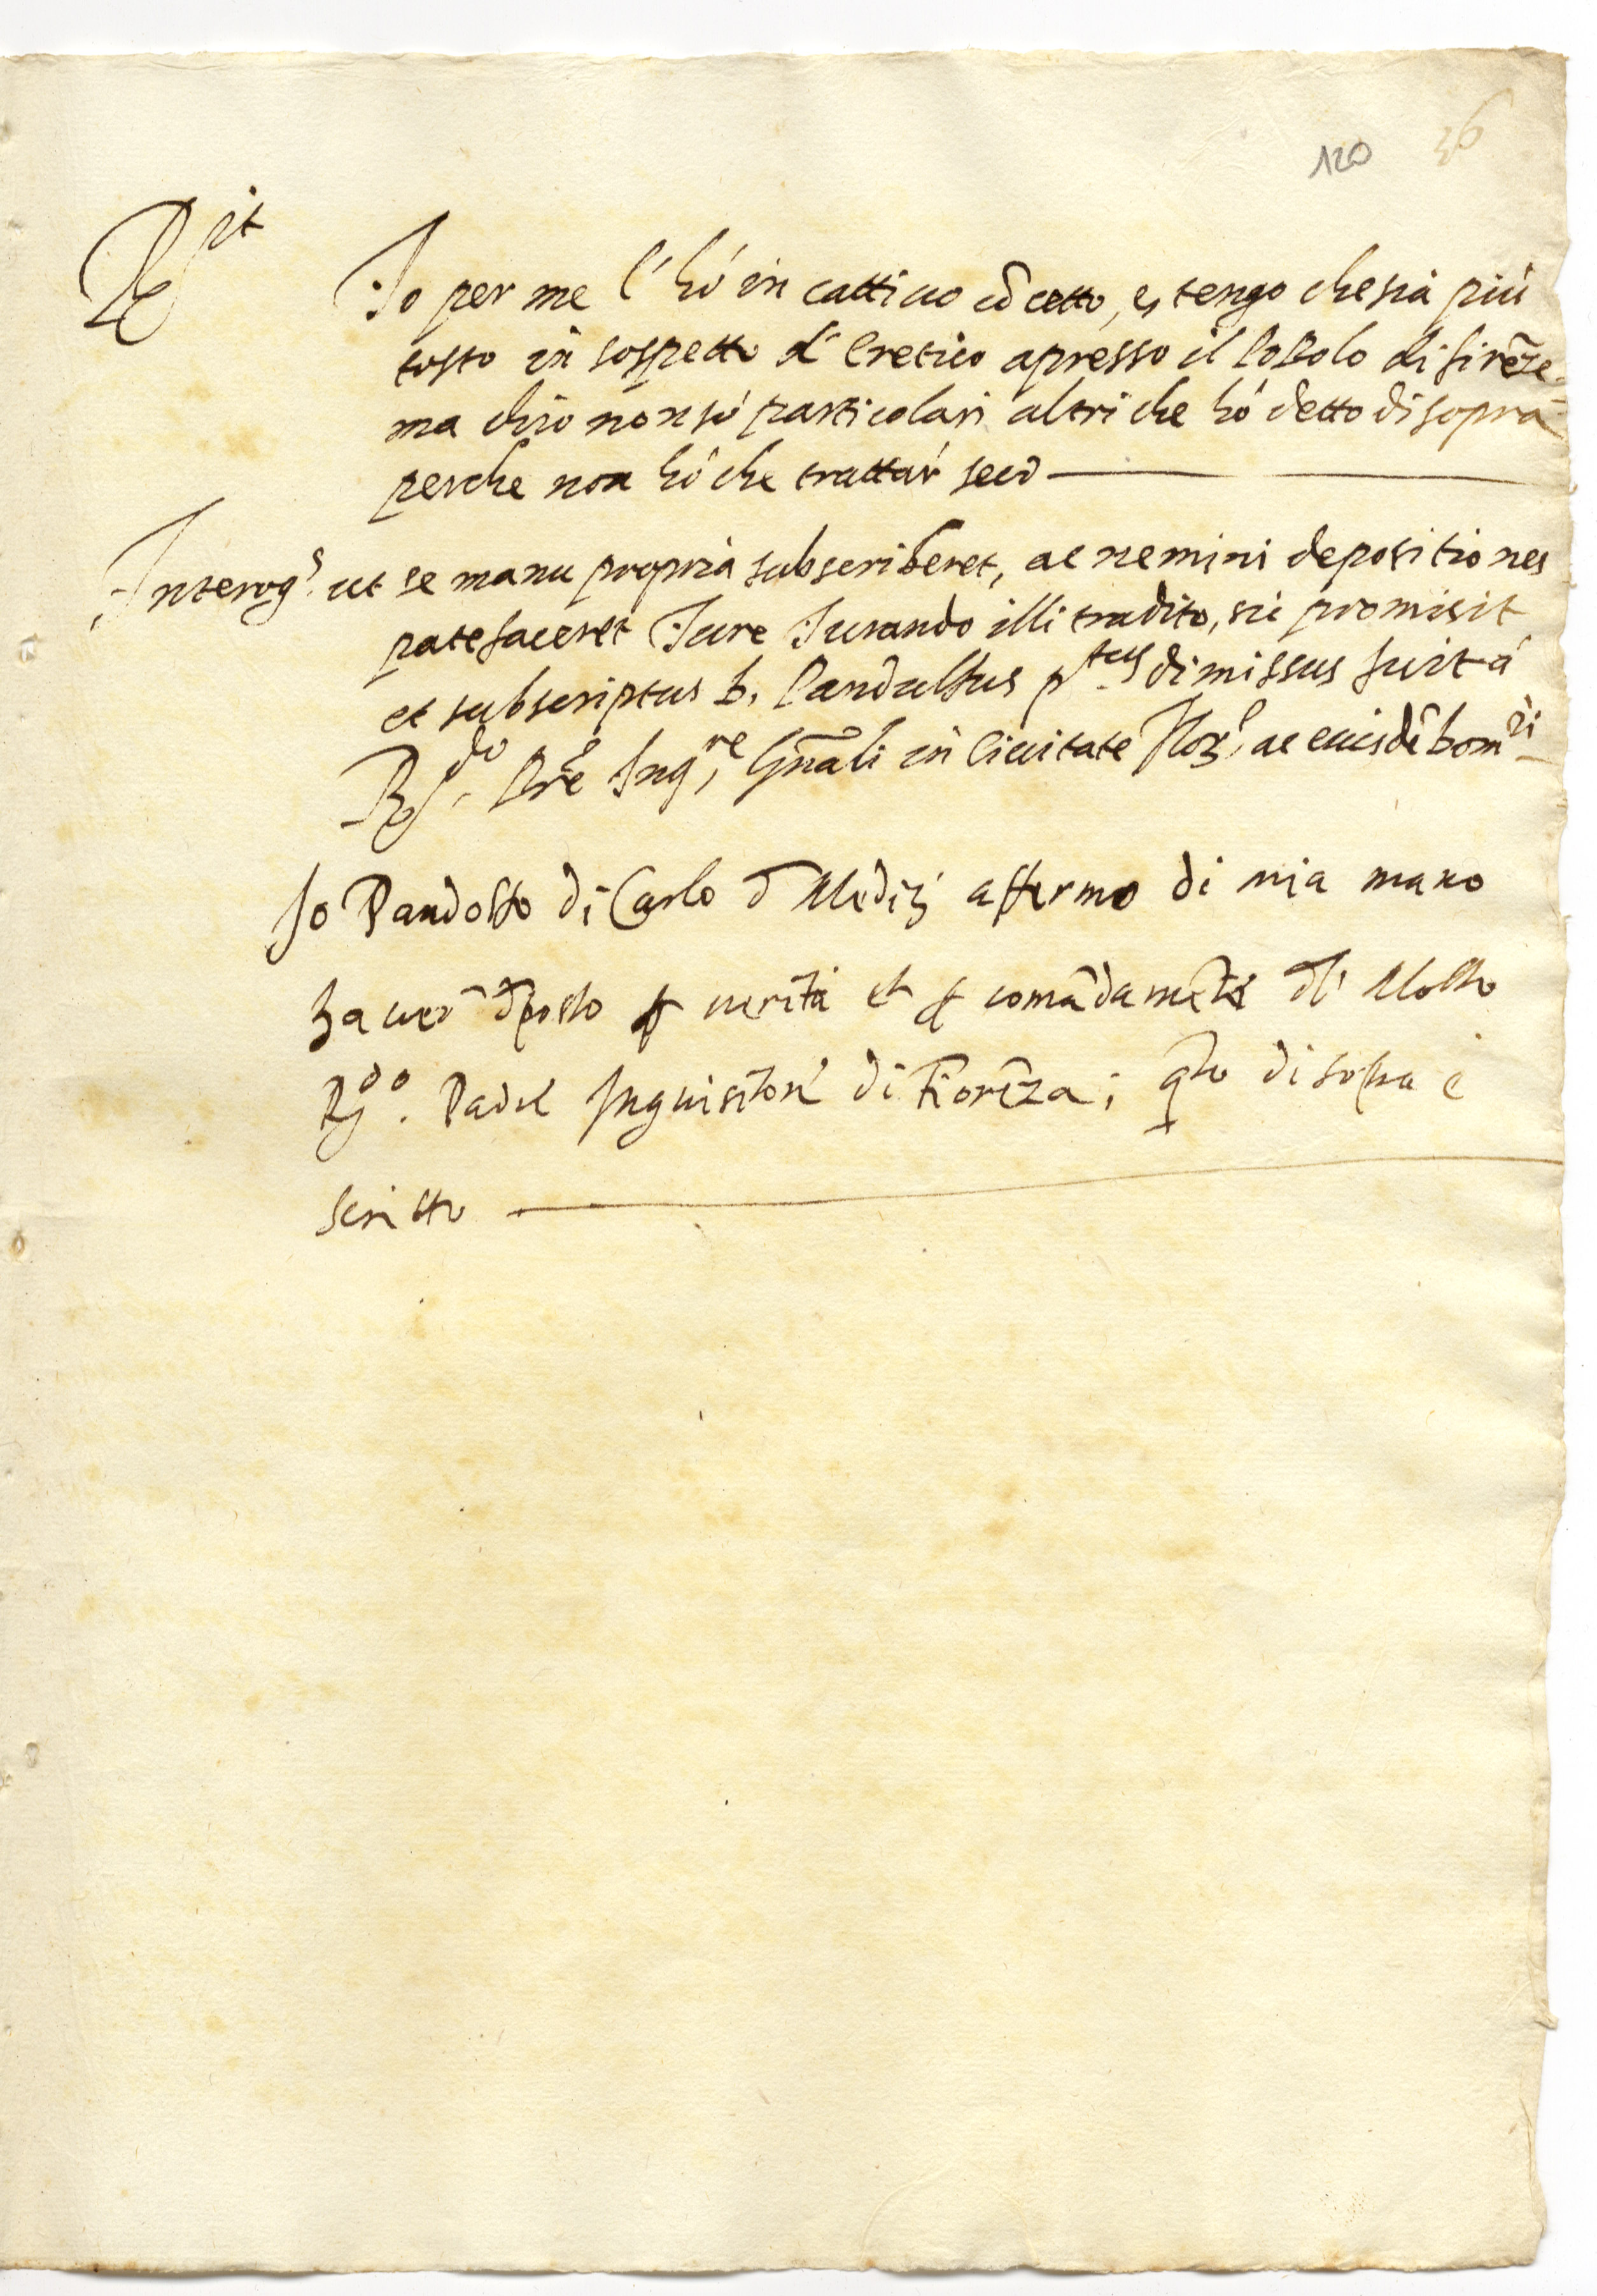 120 36
R.it Io per me l'hò in cattiuo cõcetto, e, tengo che sia più
tosto in sospetto d'Eretico apresso il Popolo di firẽze
ma ch'io non sò particolari altri che hò detto di sopra
perche non hò che trattar seco
Interog.s ut se manu propria subscriberet, ac nemini depositiones
patefaceret Iure Iurando illi tradito, sic promisit
et subscriptus D. Pandulfus p.tus dimissus fuit à
R.do Prẽ Inq.re Gñali in Ciuitate Flor. ac eiusdẽ Dom.ri
Io Pandolfo di Carlo d Medici affermo di mia mano
hauer dposto p uerità et p comãdamẽto dl Molto
R.do Padre Inquisitore di Fiorẽza; qto di sopra è
scritto